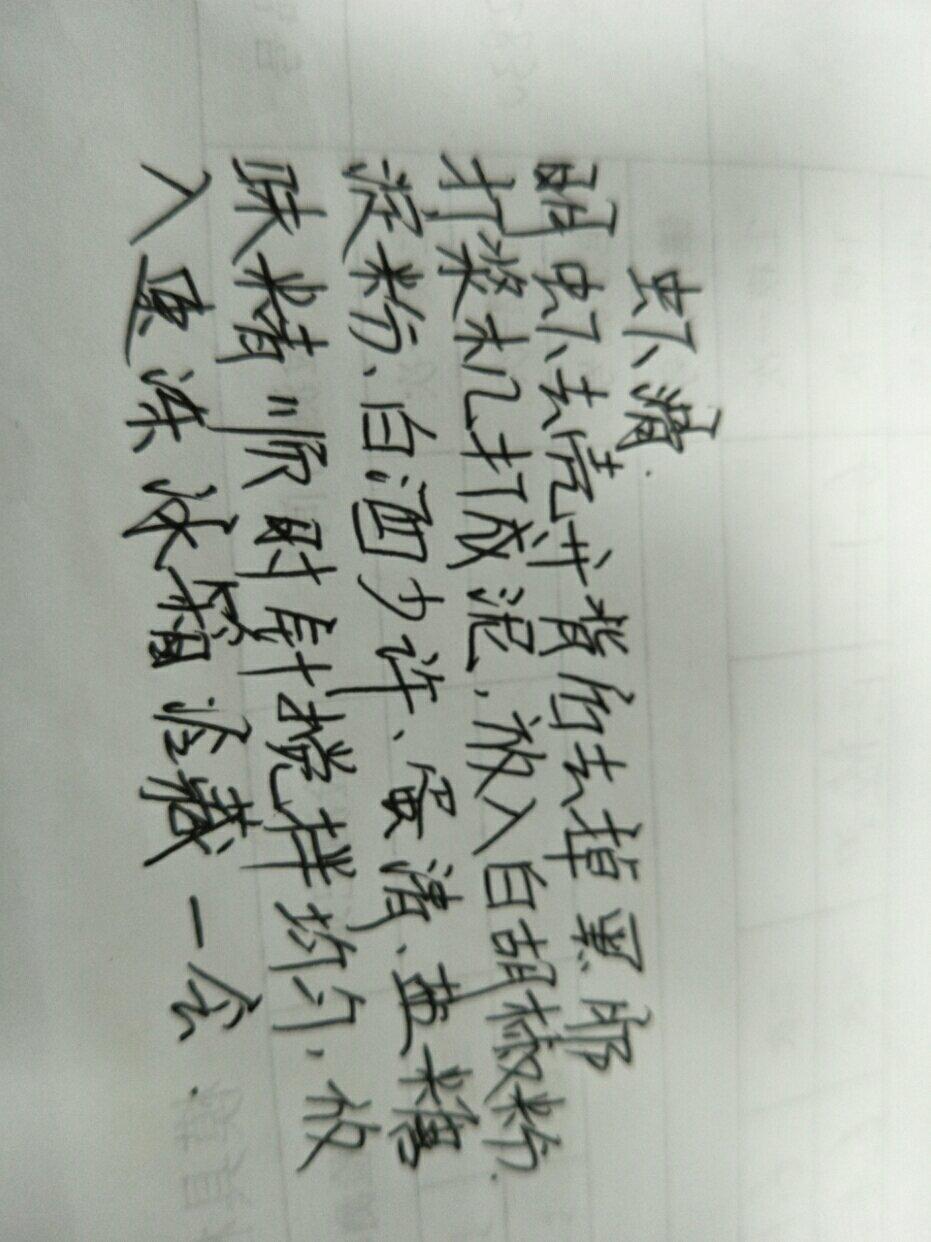 虾滑.
明虾去壳并背份去掉黑所
打浆机打成泥,放入白胡椒粉、
淀粉、白酒少许、蛋清、盐糖
味精 顺时针搅拌均匀,放
入速冻冰箱冷藏一会.